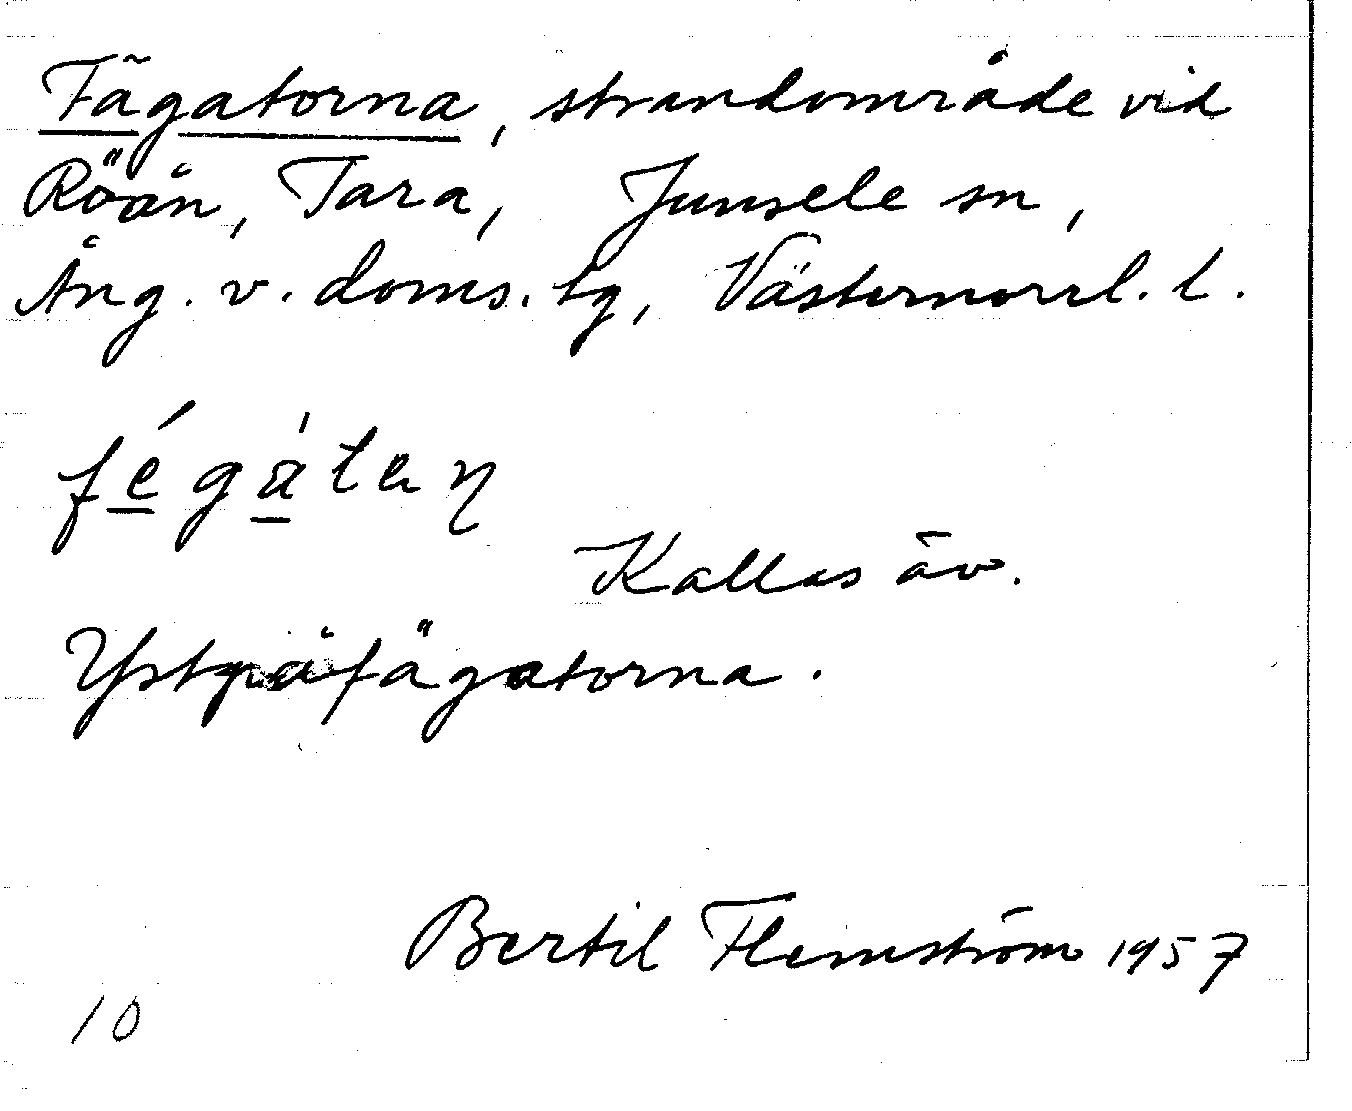 Fägatorna, strandområde vid
Röån, Tara, Junsele sn,
Ång. v. doms. tg, Västernorrl. l.
fégàten
Kallas äv.
Ystpåfägatorna.
Bertil Flemström 1957
10